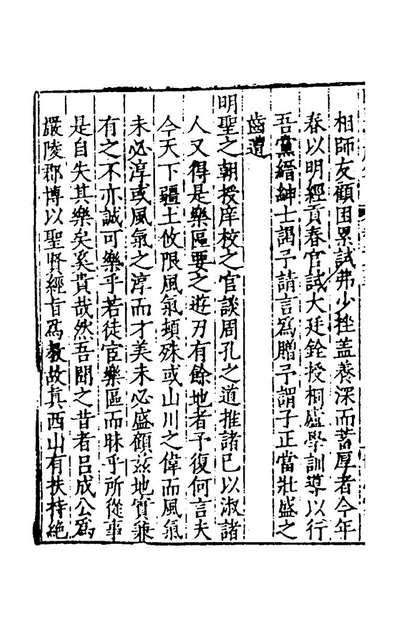 相師友顧田累試弗少挫蓋養深而蓄厚者今年
春以明經貢春官試大廷銓授桐廬學訓導以行
吾黨縉紳士謁予請言為贈予謂子正當壯盛之
齒遭
明聖之朝授庠校之官談周孔之道推諸已以淑諸
人又得是樂區要之遊刃有餘地者予復何言夫
今天下疆土攸限風氣頓殊或山川之偉而風氣
未必淳或風氣之淳而才美未必盛顧茲地實兼
有之不亦誠可樂乎若徒宦樂區而昧乎所從事
是自失其樂矣奚貴哉然吾聞之昔者呂成公為
嚴陵郡博以聖賢經旨為教故真西山有扶持絶